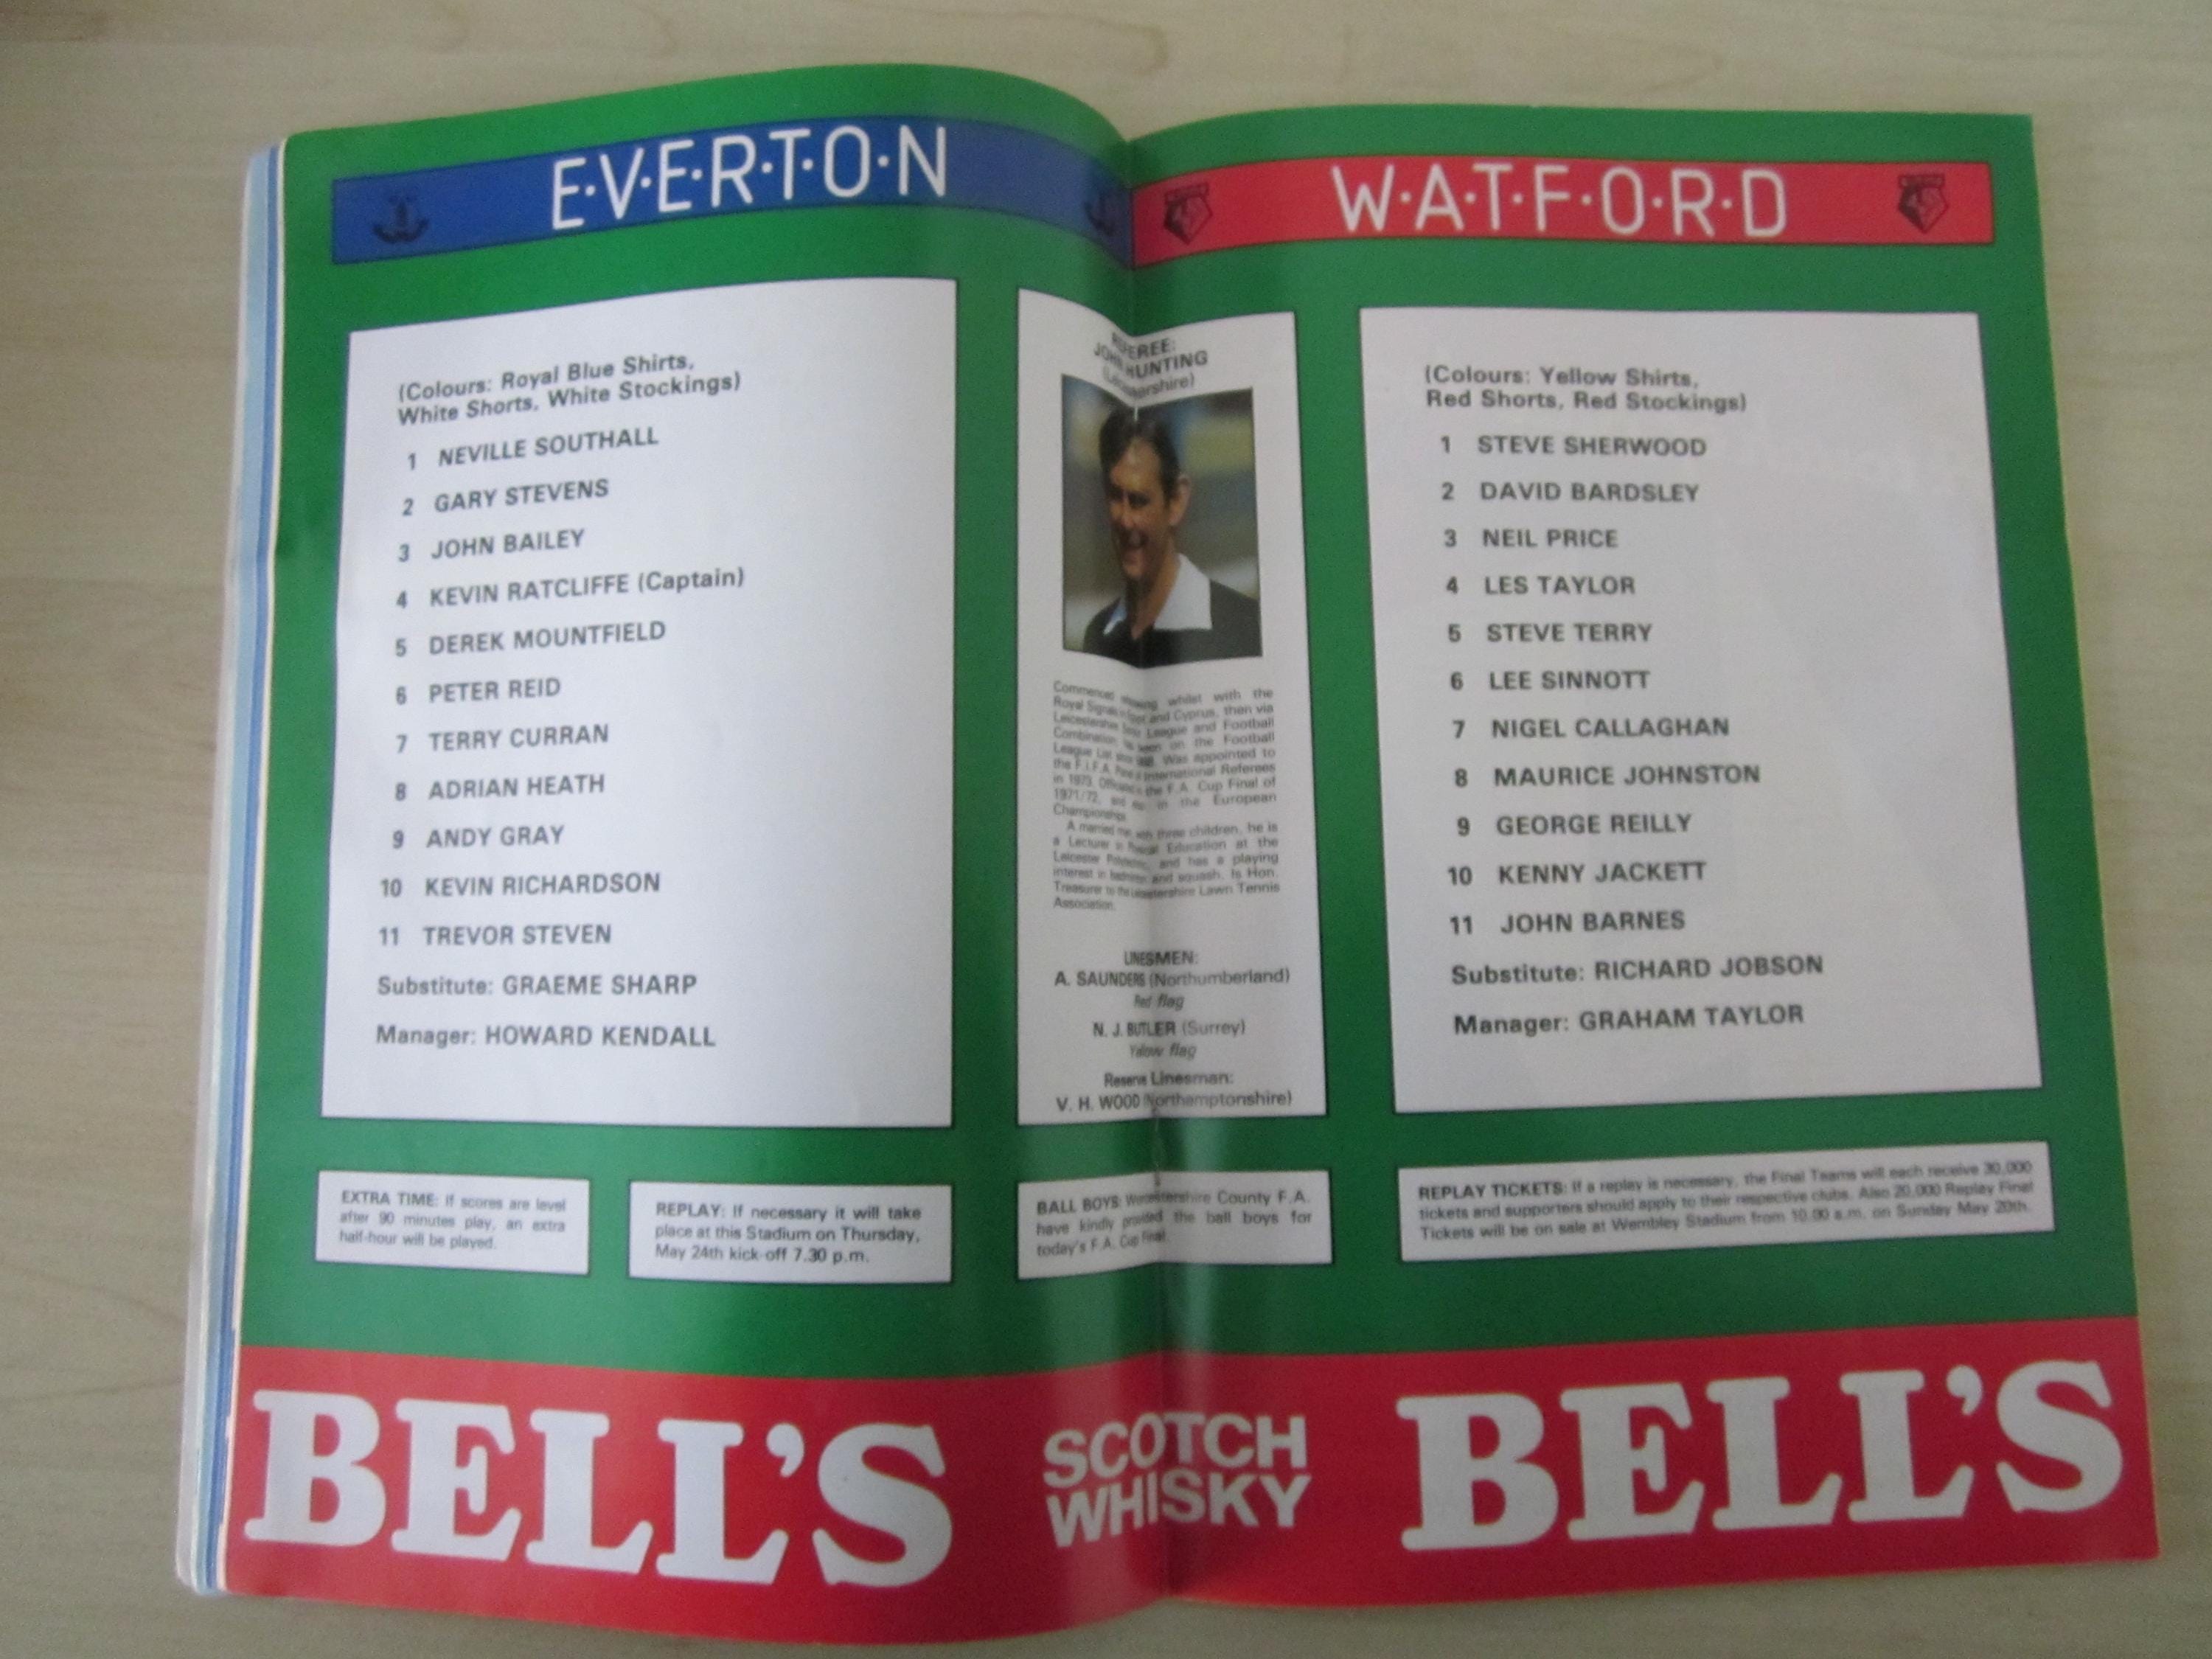 E·V·E·R·T·O·N
(Colours: Royal Blue Shirts,
White Shorts, White Stockings)
1 NEVILLE SOUTHALL
2 GARY STEVENS
3 JOHN BAILEY
4 KEVIN RATCLIFFE (Captain)
5 DEREK MOUNTFIELD
6 PETER REID
7 TERRY CURRAN
8 ADRIAN HEATH
9 ANDY GRAY
10 KEVIN RICHARDSON
11 TREVOR STEVEN
Substitute: GRAEME SHARP
Manager: HOWARD KENDALL
REFEREE:
JOHN HUNTING
(Leicestershire)
Commenced whilst with the
Royal Signals and Cyprus, then via
Leicestershire League and Football
Combination, on the Football
League List Was appointed to
the F.I.F.A. International Referees
in 1973. the F.A. Cup Final of
1971/72, in the European
Championship.
A married three children, he is
a Lecturer in Education at the
Leicester and has a playing
interest in and squash. Is Hon.
Treasurer to the Leicestershire Lawn Tennis
Association.
LINESMEN:
A. SAUNDERS (Northumberland)
Red flag
N. J. BUTLER (Surrey)
Yellow flag
Reserve Linesman:
V. H. WOOD (Northamptonshire)
W·A·T·F·O·R·D
(Colours: Yellow Shirts,
Red Shorts, Red Stockings)
1 STEVE SHERWOOD
2 DAVID BARDSLEY
3 NEIL PRICE
4 LES TAYLOR
5 STEVE TERRY
6 LEE SINNOTT
7 NIGEL CALLAGHAN
8 MAURICE JOHNSTON
9 GEORGE REILLY
10 KENNY JACKETT
11 JOHN BARNES
Substitute: RICHARD JOBSON
Manager: GRAHAM TAYLOR
EXTRA TIME: If scores are level
after 90 minutes play, an extra
half-hour will be played.
REPLAY: If necessary it will take
place at this Stadium on Thursday,
May 24th kick-off 7.30 p.m.
BALL BOYS: Worcestershire County F.A.
have kindly provided the ball boys for
today's F.A. Cup Final.
REPLAY TICKETS: If a replay is necessary, the Final Teams will each receive 30,000
tickets and supporters should apply to their respective clubs. Also 20,000 Replay Final
Tickets will be on sale at Wembley Stadium from 10.00 a.m. on Sunday May 20th.
BELL'S
SCOTCH
WHISKY
BELL'S